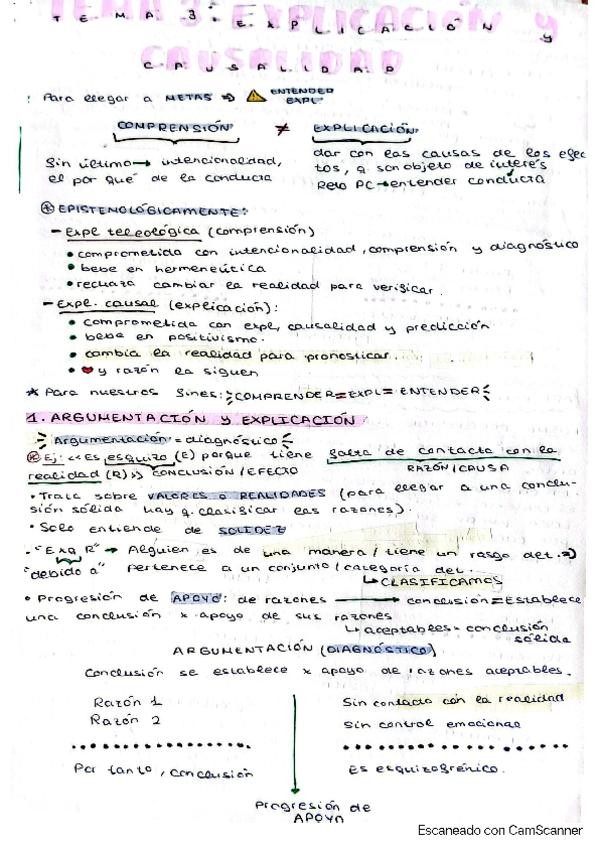 TEMA 3: EXPLICACIÓN y
CAUSALIDAD
Para llegar a METAS => ⚠ ENTENDER
EXPL.
COMPRENSIÓN ≠ EXPLICACIÓN
Sin último → intencionalidad,
el por qué de la conducta
dar con las causas de los efec
tos, q son objeto de interés
Reto PC → entender conducta
* EPISTENOLÓGICAMENTE:
- Expl teleológica (comprensión)
• comprometida con intencionalidad, comprensión y diagnóstico
• bebe en hermeneútica
• rechaza cambiar la realidad para verificar.
- Expl. causal (explicación):
• comprometida con expl, causalidad y predicción
• bebe en positivismo.
• cambia la realidad para pronosticar.
• ♥ y razón la siguen
* Para nuestros fines: COMPRENDER = EXPL = ENTENDER
1. ARGUMENTACIÓN y EXPLICACIÓN
Argumentación = diagnóstico
* Ej: «Es esquizo (E) porque tiene falta de contacto con la
realidad (R)» CONCLUSIÓN / EFECTO RAZÓN / CAUSA
• Trata sobre VALORES o REALIDADES (para llegar a una conclu-
sión sólida hay q. clasificar las razones).
• Solo entiende de SOLIDEZ
• "E x q R" → Alguien es de una manera / tiene un rasgo det. =>
"debido a" pertenece a un conjunto / categoría det.
↳ CLASIFICAMOS
• Progresión de APOYO: de razones → conclusión = Establece
una conclusión x apoyo de sus razones
↳ aceptables = conclusión
sólida
ARGUMENTACIÓN (DIAGNÓSTICO)
Conclusión se establece x apoyo de razones aceptables.
Razón 1 Sin contacto con la realidad
Razón 2 Sin control emocional
Por tanto, conclusión Es esquizofrénico.
Progresión de
APOYO
Escaneado con CamScanner